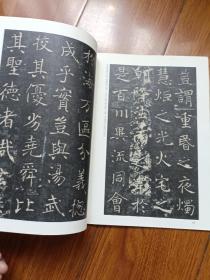 豈謂重昏之夜燭
慧炬之光火宅之
朝降法雨之澤於
是百川異流同會
於海万區分義總
成乎實豈與湯武
校其優劣堯舜比
其聖德者哉